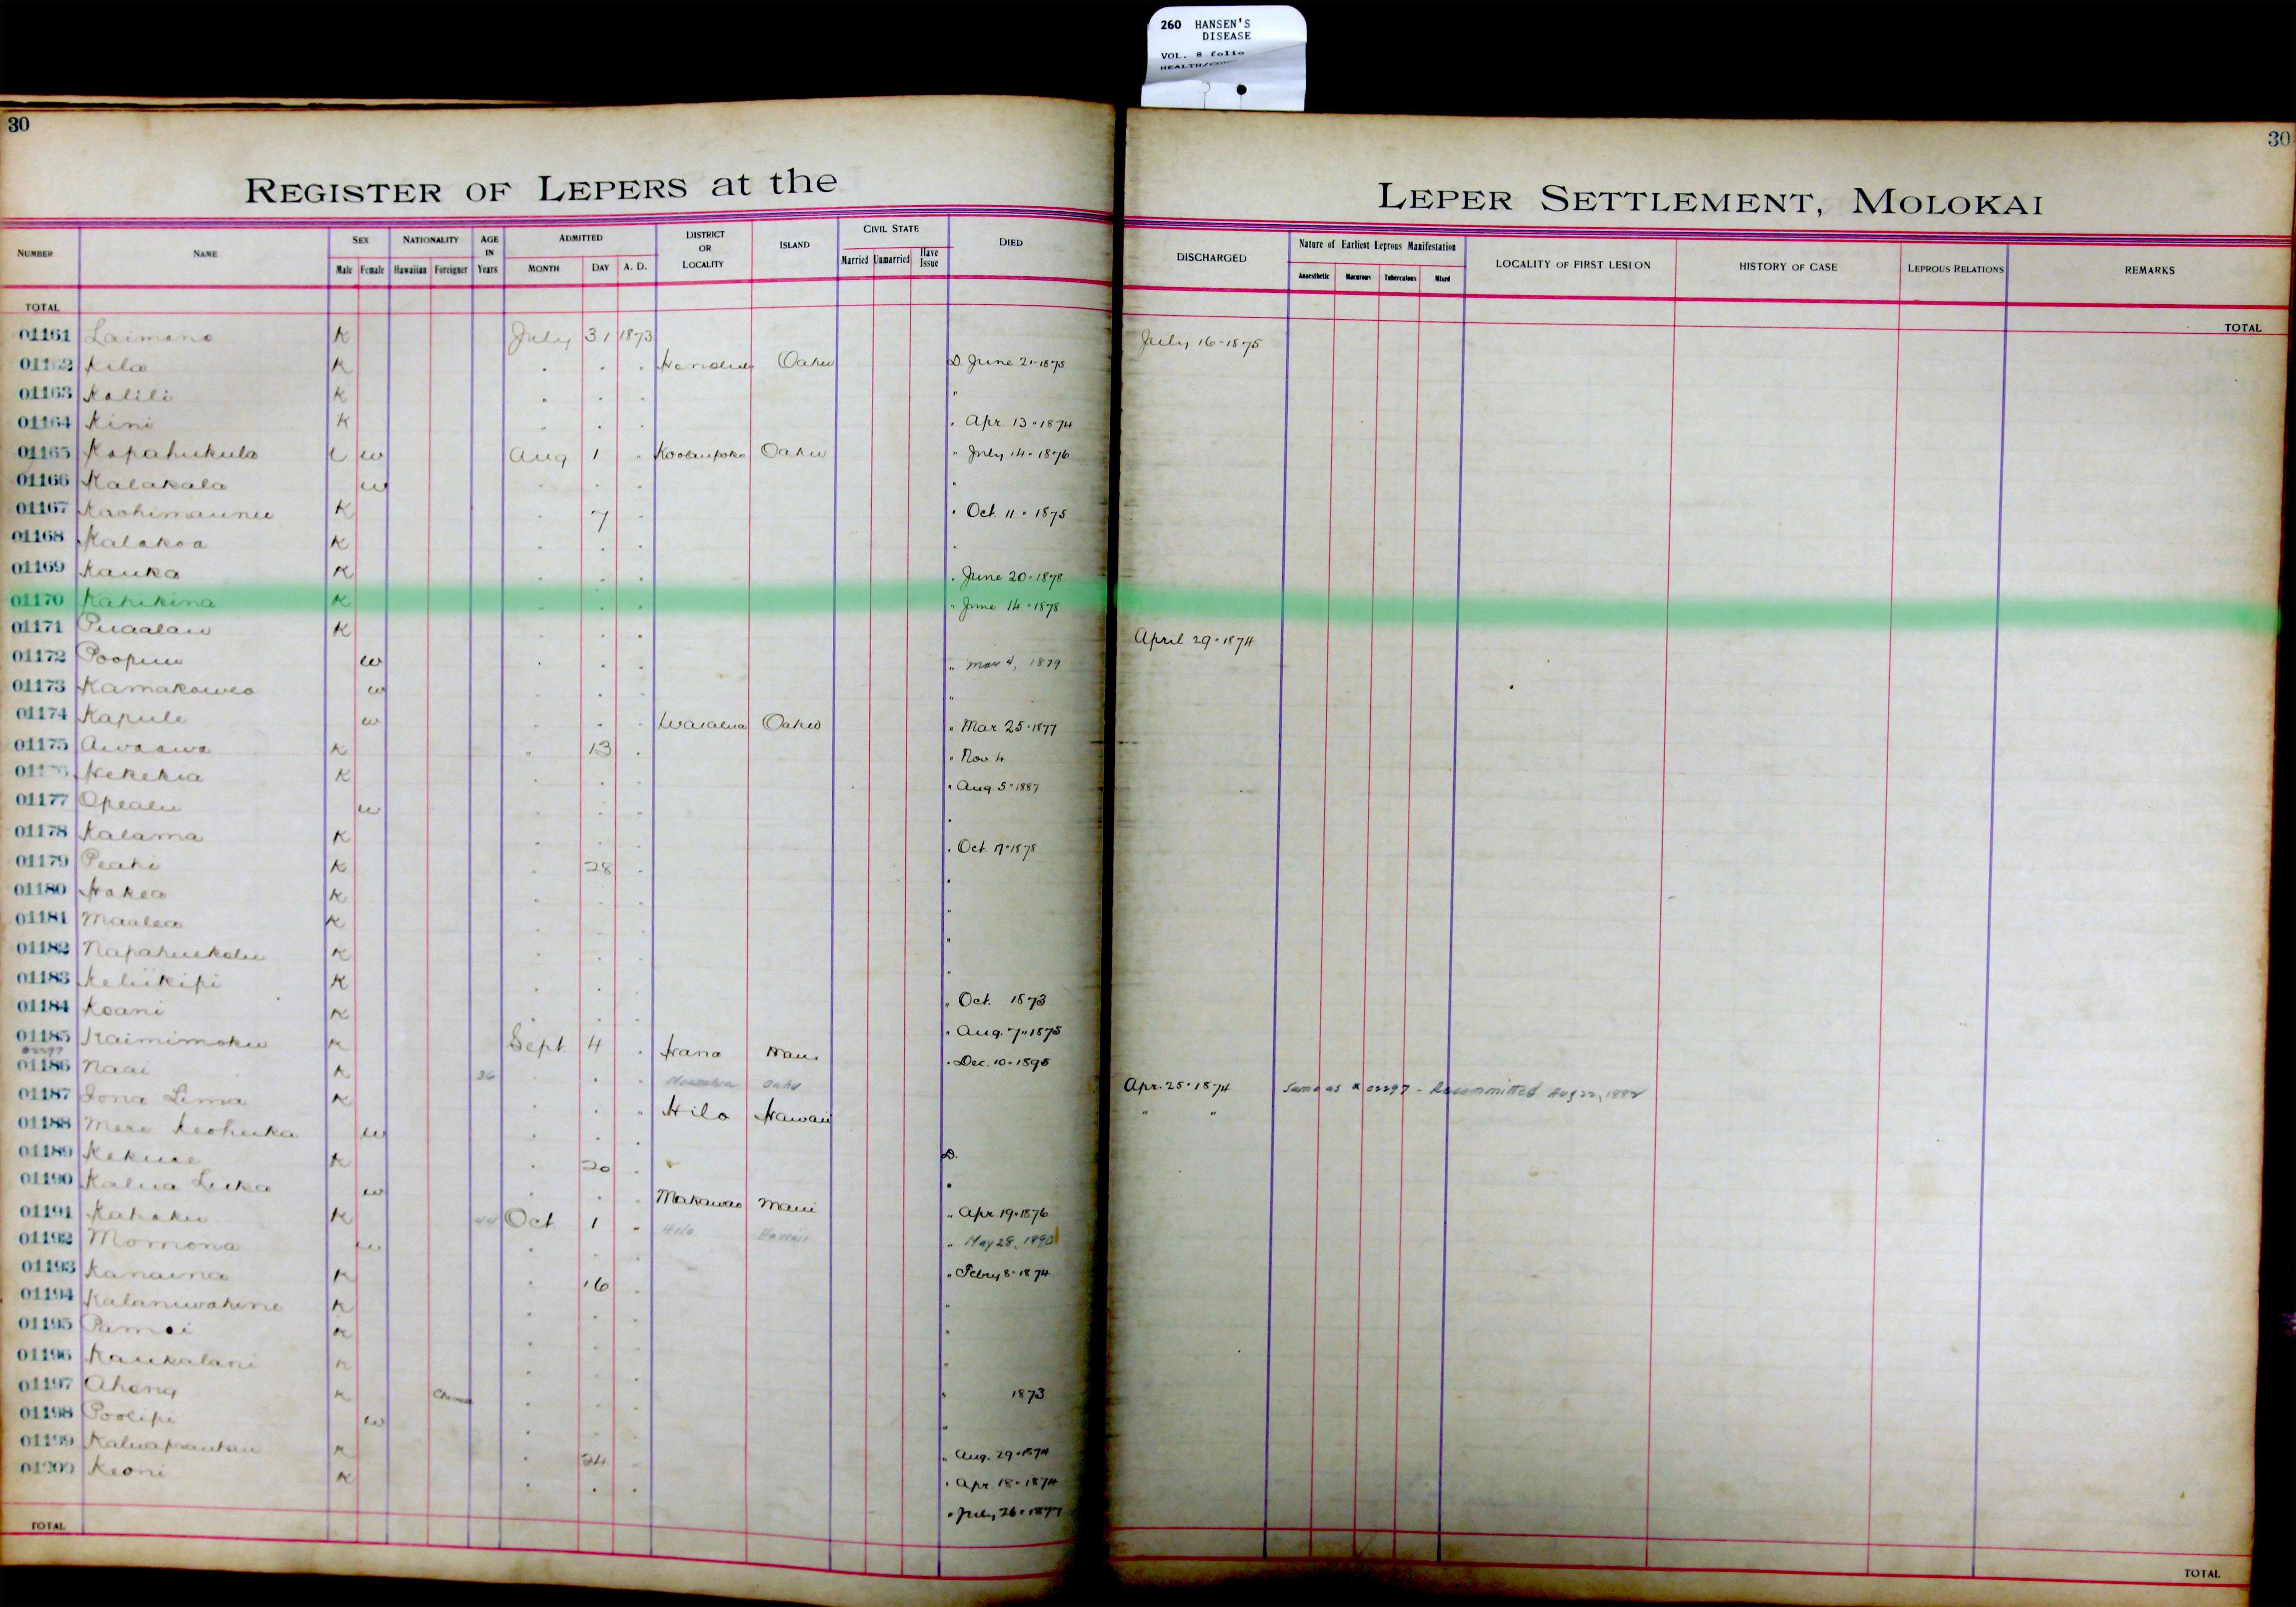 260 HANSEN'S
DISEASE
VOL. 8 folio
30
30
REGISTER OF LEPERS at the
LEPER SETTLEMENT, MOLOKAI
NUMBER NAME SEX NATIONALITY AGE IN Years ADMITTED DISTRICT OR LOCALITY ISLAND CIVIL STATE DIED DISCHARGED Nature of Earliest Leprous Manifestation LOCALITY OF FIRST LESION HISTORY OF CASE LEPROUS RELATIONS REMARKS
Male Female Hawaiian Foreigner MONTH DAY A. D. Married Unmarried Have Issue Anaesthetic Macurous Tuberculous Mixed
TOTAL TOTAL
01161 Laimana K July 31 1873 July 16-1875
Kila K . . . Honolulu Oahu D. June 21-1875
01163 Kalili K . . . "
01164 Kini K . . . . Apr. 13-1874
01165 Kapahukula w Aug 1 . Koolaupoko Oahu " July 14-1876
01166 Kalakala w . . . .
01167 K . 7 . . Oct. 11-1875
01168 Kalakoa K . . . .
01169 Kauka K . . . . June 20-1878
01170 Kahikina K . . . " June 14-1878
01171 Puaalau K . . . April 29-1874
01172 Poopuu w . . . " Mar 4, 1879
01173 Kamakawea w . . . "
01174 Kapule w . . . Waialua Oahu " Mar. 25-1877
01175 Awaawa K . 13 . . Nov. 4
Hekekia K . . . . Aug 5-1887
01177 Opealu w . . . .
01178 Kalama K . . . . Oct. 17-1878
01179 Peahi K . 28 . .
01180 Hakea K . . . .
01181 Maalea K . . . .
01182 Napahuekolu K . . . .
01183 Keliikipi K . . . " Oct. 1873
01184 Koani K . . . . Aug. 7-1875
01185 Kaimimoku K Sept. 4 . Hana Maui . Dec. 10-1895
01186 Naai K 36 . . Oahu Apr. 25-1874 Same as # 02297 - Recommitted Aug 22, 1882
01187 Iona Lima K . . " Hilo Hawaii " "
01188 Mere Keohuka w . . .
01189 Kekuae K . 20 . D.
01190 Kalua Luka w . . . Makawao Maui .
01191 Kahaku K 44 Oct 1 . Hilo Hawaii " Apr. 19-1876
01192 Momona w . . . " May 28, 1890
01193 Kanaina K . 16 . " Febry 8-1874
01194 Kalaniwahine K . . . "
01195 K . . . .
01196 Kaukalani K . . . "
01197 Ahong K . . . 1873
01198 Poolipi w . . . "
01199 K . 24 . " Aug. 29-1874
01200 Keoni K . . . . Apr. 18-1874
. July 26-1877
TOTAL TOTAL